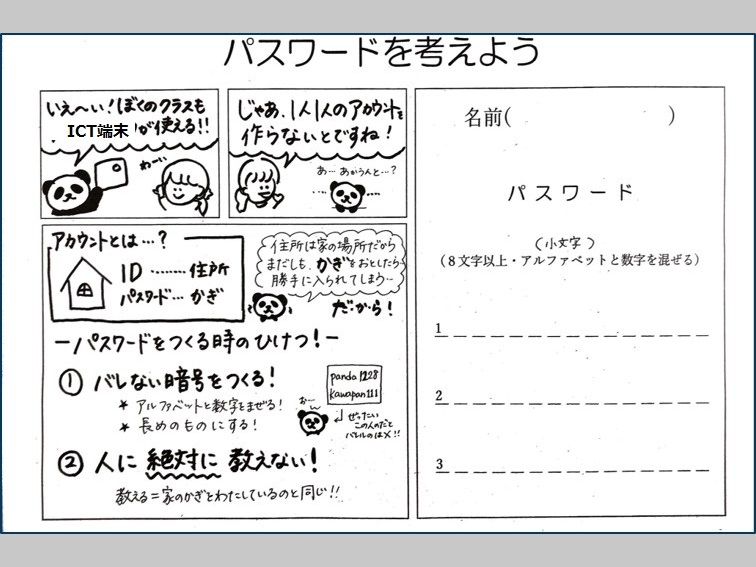 パスワードを考えよう
いえ〜い！ぼくのクラスも
ICT端末が使える！！
わーい
じゃあ、1人1人のアカウントを
作らないとですね！
あ…あかうんと…？
アカウントとは…？
ID………住所
パスワード…かぎ
住所は家の場所だから
まだしも、かぎをおとしたら
勝手に入られてしまう…
だから！
ーパスワードをつくる時のひけつ！ー
① バレない暗号をつくる！
＊ アルファベットと数字をまぜる！
＊ 長めのものにする！
panda1228
kawapan111
おー
ぜったい
この人のだと
バレルのは×!!
② 人に 絶対に 教えない！
教える＝家のかぎをわたしているのと同じ!!
名前(　　　　　　　)
パスワード
(小文字)
(8文字以上・アルファベットと数字を混ぜる)
1
2
3